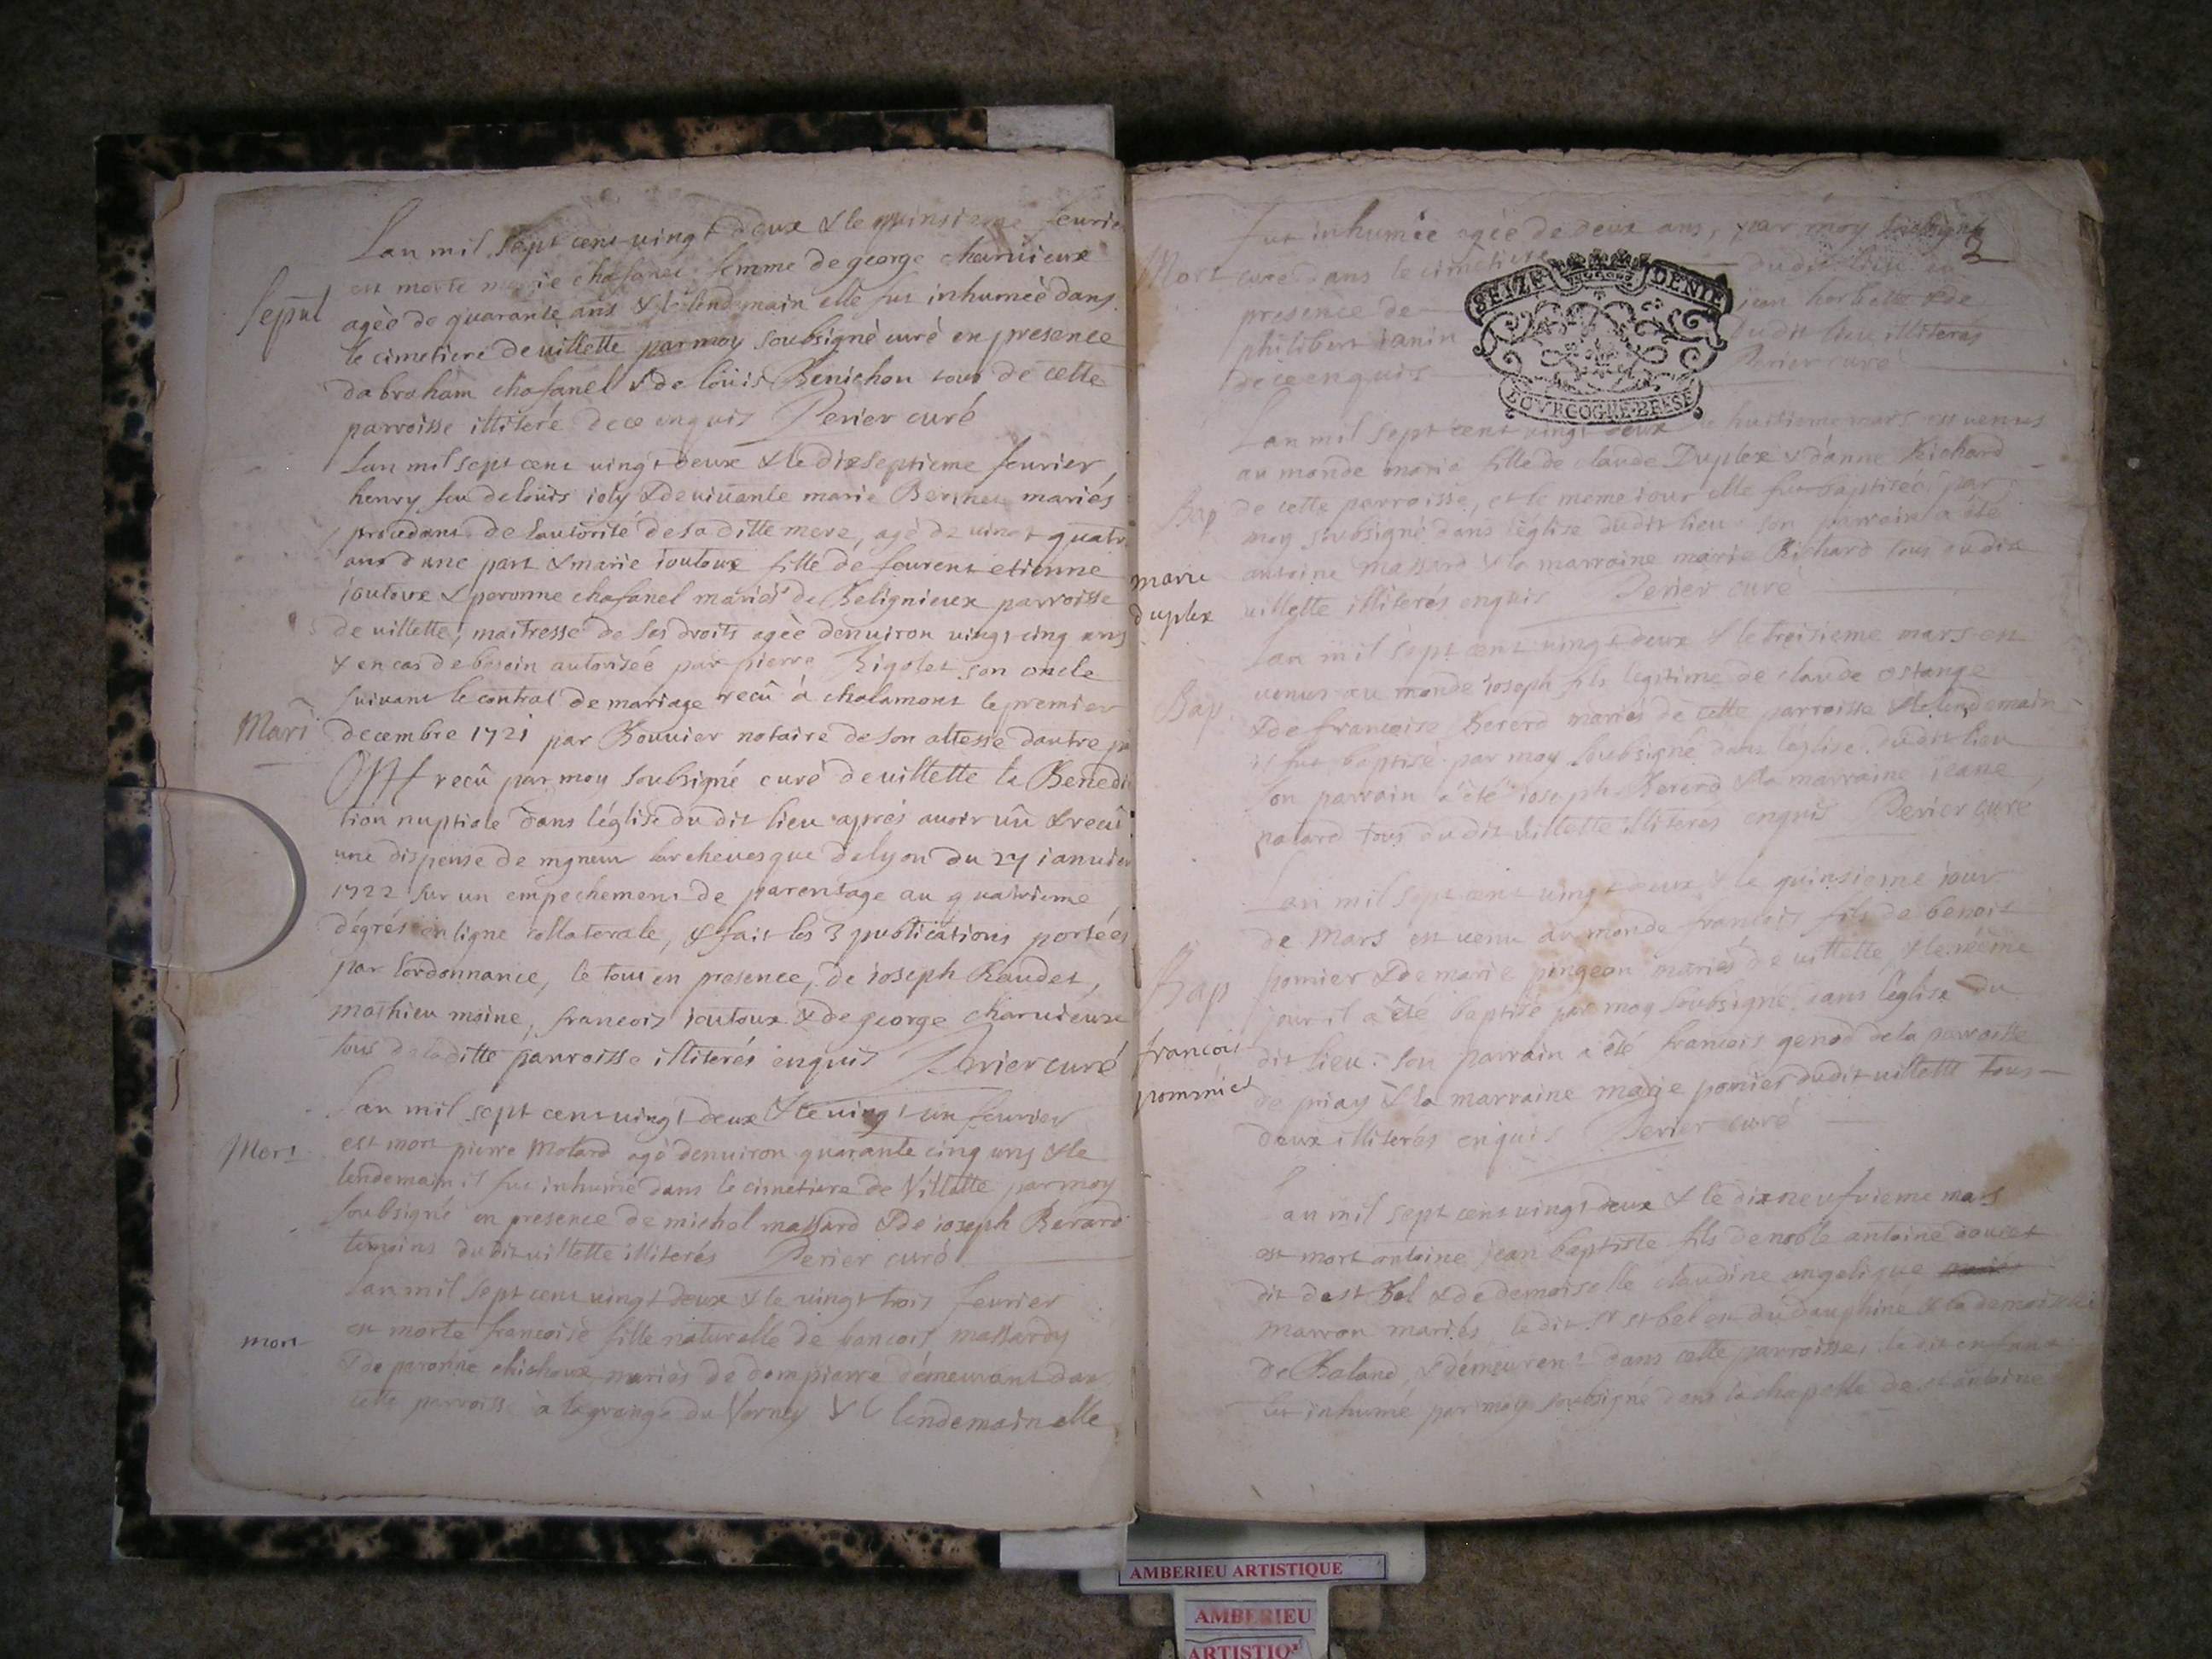 Lan mil sept cent vingt deux & le quinsieme feurie
est morte marie chafanel femme de george charuieux
Sepul
agèe de quarante ans & le lendemain elle fut inhumeè dans
le cimetiere de uillette par moy soubsigné curé en presence
dabraham chafanel & de loüis Benichon tous de cette
parroisse illiteré de ce enquis Perier curé
Lan mil sept cent vingt deux & le dixseptieme feurier
henry feu de loüis ioly & de uiuante marie mariés
procedant de lautorité de sa ditte mere, agé de vingt quatr
ans dune part & marie ioutoux fille de feurent etienne
ioutoux & peronne chafanel mariés de Belignieux parroisse
de uillette, maitresse de ses droits agèe denuiron vingt cinq ans
& en cas de besoin autoriseé par pierre Rigolet son oncle
suiuant le contrat de mariage reçû à chalamont le premier
Mari
decembre 1721 par Bouuier notaire de son altesse dautre
Ont reçû par moy soubsigné curé de uillette la Benedi
tion nuptiale dans léglise du dit lieu aprés auoir vû & recû
une dispense de mgneur larcheuesque de lyon du 27 ianuier
1722 sur un empechement de parentage au quatrieme
dégrés en ligne collaterale, & fait les 3 publications portées
par lordonnance, le tout en presence, de ioseph Raudet,
mathieu moine, francois ioutoux & de george charuieux
tous de laditte parroisse illiterés enquis Perier curé
Lan mil sept cent vingt deux & le vingt un feurier
Mort
est mort pierre Molard agé denuiron quarante cinq ans & le
lendemain il fut inhumé dans le cimetiere de Villette par moy
soubsigné en presence de michel massard & de ioseph Berard
temoins du dit uillette illiterés Perier curé
Lan mil sept cent vingt deux & le vingt trois feurier
mort
est morte francoise fille naturelle de francois massardy
& de peronne chichoux mariés de dompierre demeurant dan
cette parroisse à la grange du Verney & le lendemain elle
2
fut inhumée agèe de deux ans, par moy soubsigné
Mort
curé dans le cimetiere du dit lieu en
presence de jean & de
philibert ianin du dit lieu illiterés
de ce enquis Perier curé
SEIZE DENIE
BOVRGOGNE BRESSE
Lan mil sept cent vingt deux le huitieme mars est venue
au monde marie fille de claude Duplex & danne Richard
Bap
de cette parroisse, et le meme iour elle fut baptiseé par
moy soubsigné dans léglise dudit lieu son parrain a été
marie
duplex
antoine massard & la marraine marie Richard tous du dit
uillette illiterés enquis Perier curé
Lan mil sept cent vingt deux & le troisieme mars est
Bap
venus au monde ioseph fils legitime de claude estange
& de francoise Bererd mariés de cette parroisse & le lendemain
il fut baptisé par moy soubsigné dans léglise dudit lieu
son parrain a été ioseph Bererd & la marraine ieane
palard tous du dit uillette illiterés enquis Perier curé
Lan mil sept cent vingt deux & le quinsieme iour
de Mars est venu au monde francois fils de benoit
Bap
pomier & de marie pingeon mariés de uillette, & le même
jour il a été baptisé par moy soubsigné dans léglise du
francois
pommier
dit lieu: son parrain a été francois genod de la parroisse
de priay & la marraine marie pomier du dit uillette tous
deux illiterés enquis Perier curé
Lan mil sept cent vingt deux & le dixneufuieme mars
est mort antoine jean baptiste fils de noble antoine doucet
dit de st Bel & de demoiselle claudine angelique
marron mariés, le dit sr st bel est du dauphiné & la demoiselle
de Baland, & demeurent dans cette parroisse, le dit enfant
fut inhumé par moy soubsigné dans la chapelle de st antoine
AMBERIEU ARTISTIQUE
AMBERIEU
ARTISTIQ